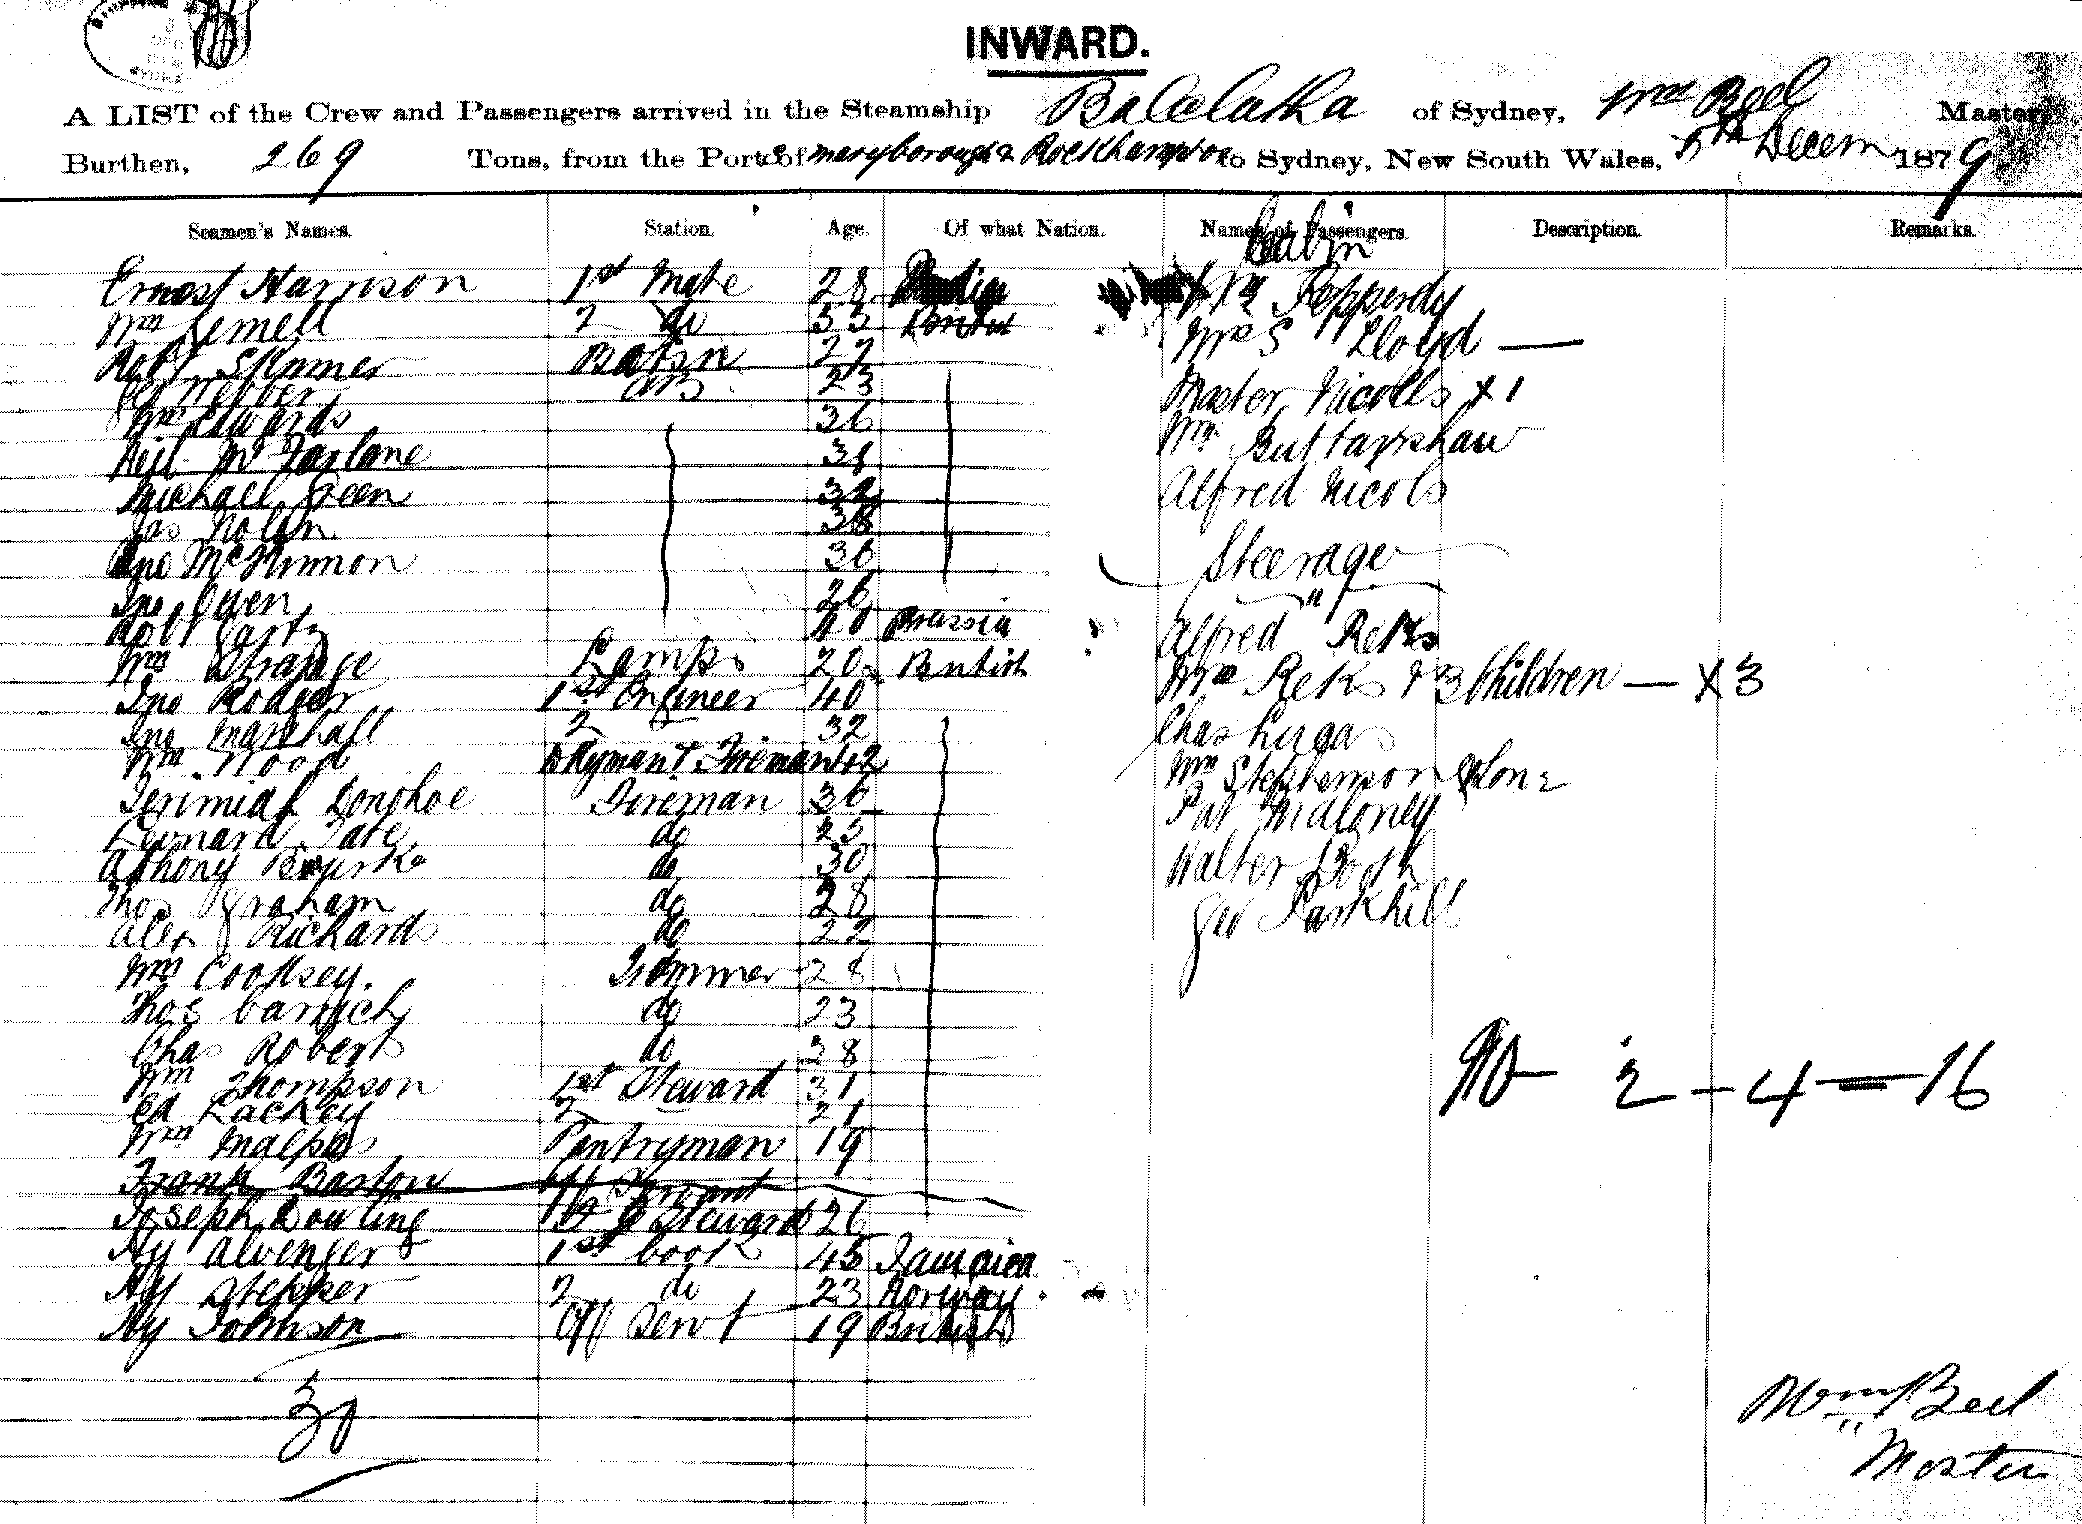 INWARD.
A LIST of the Crew and Passengers arrived in the Steamship Balclatha of Sydney, Wm Beel Master,
Burthen, 269 Tons, from the Port of Maryborough & Rockhampton to Sydney, New South Wales, 5th Decem 1879
Seamen's Names. Station. Age. Of what Nation. Names of Passengers. Description. Remarks.
Cabin
Ernest Harrison 1st Mate 28
Wm Lemell 2 do 33 British
Robt Skinner Botsn 27
Webber AB 23
Wm Edwards 36
Neil McFarlane 38
Michael Green 32
Jas Nolan 38
Jno McKinnon 36
Jno Owen 26
Robt 40 Prussia
Wm Strange Lamps 20 British
Jno Rodger 1st Engineer 40
Jno Marshall 2 32
Wm Wood Fireman 42
Jerimiah Donohoe Fireman 36
Leonard Tate do 25
Anthony Bourke do 30
Thos Graham do 28
Alex Richards do 22
Wm Cooksey. Trimmer 28
Thos do 23
Chas Roberts do 28
Wm Thompson 1st Steward 31
Ed Lackey 2 21
Wm Malpas Pantryman 19
Frank Barlow
Joseph Dowling Steward 26
Hy 1st Cook 45 Jamaica
Hy Stepper 2 do 23 Norway
Hy Johnson Off Servt 19 British
30
Pepperdy
Mrs S Lloyd —
Master Nicolls X 1
Wm Buttarshaw
Alfred Nicols
Steerage
Alfred Reks
Mrs Reks & 3 Children — X 3
Chas Lugas
Wm Stephenson & Son 2
Pat Maloney
Walter Booth
Geo Parkhill
10 — 2 — 4 = 16
Wm Beel
Master